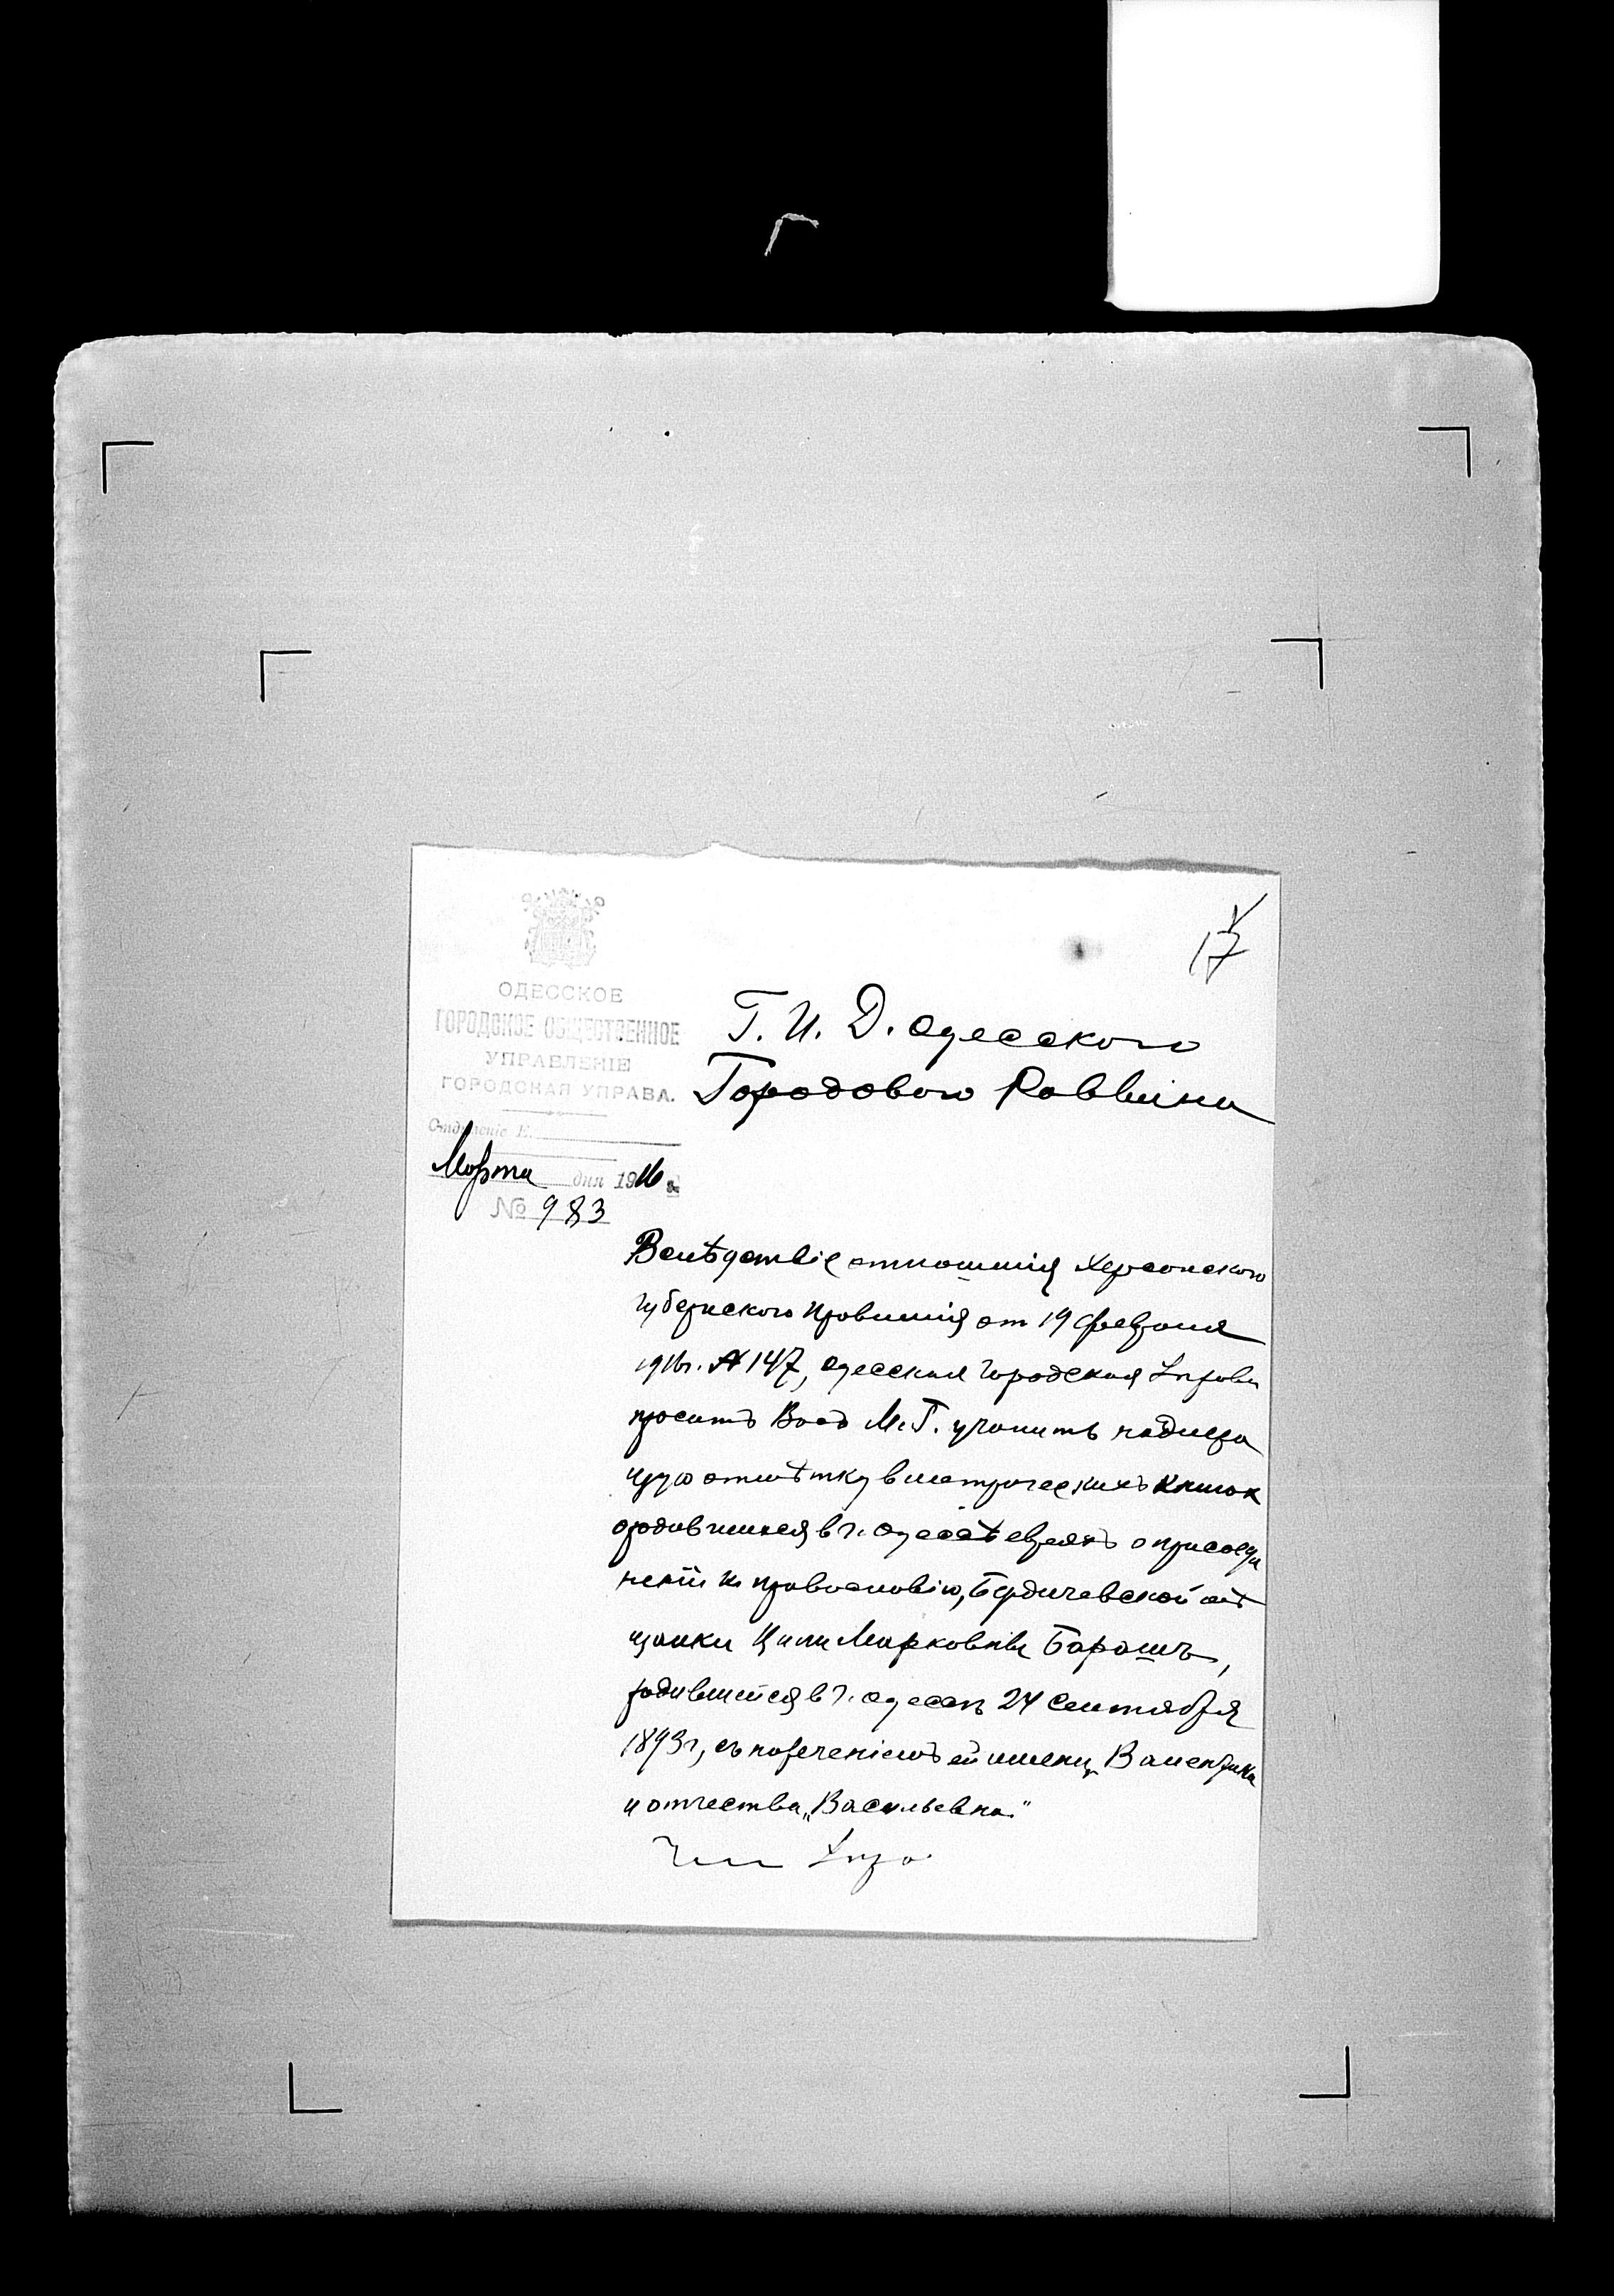 17
ОДЕССКОЕ
ГОРОДСКОЕ ОБЩЕСТВЕННОЕ
УПРАВЛЕНІЕ
ГОРОДСКАЯ УПРАВА.
Отдѣленіе Е.
Марта дня 1916 г.
№ 983
Г. И. Д. Одесского
Городового Раввина
Вслѣдствіе отношенія Херсонского
Губернского Правленія от 19 февраля
1916 г. № 147, Одесская Городская Управа
проситъ Васъ М. Г. учинить надлежа
щую отмѣтку в метрическихъ книгах
о родившихся в г. Одессѣ евреяхъ о присоеди
неніи к православію, Бердичевской мѣ
щанки Ципи Марковны Барашъ,
родившейся в г. Одессѣ 24 Сентября
1893 г, съ нареченіемъ ей имени Валентина
и отчества „Васильевна"